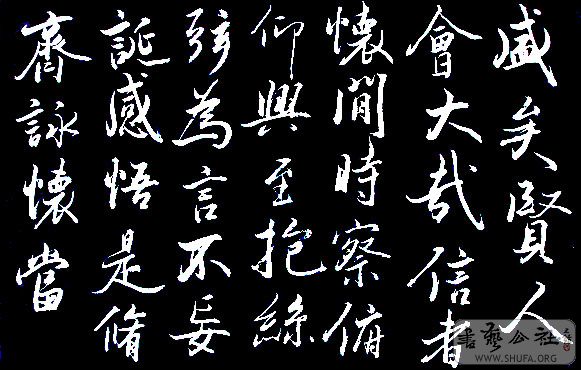 盛矣賢人
會大哉信者
懷閒時察俯
仰興至抱絲
弦為言不妄
誕感悟是脩
齊詠懷當
書藝公社
WWW.SHUFA.ORG